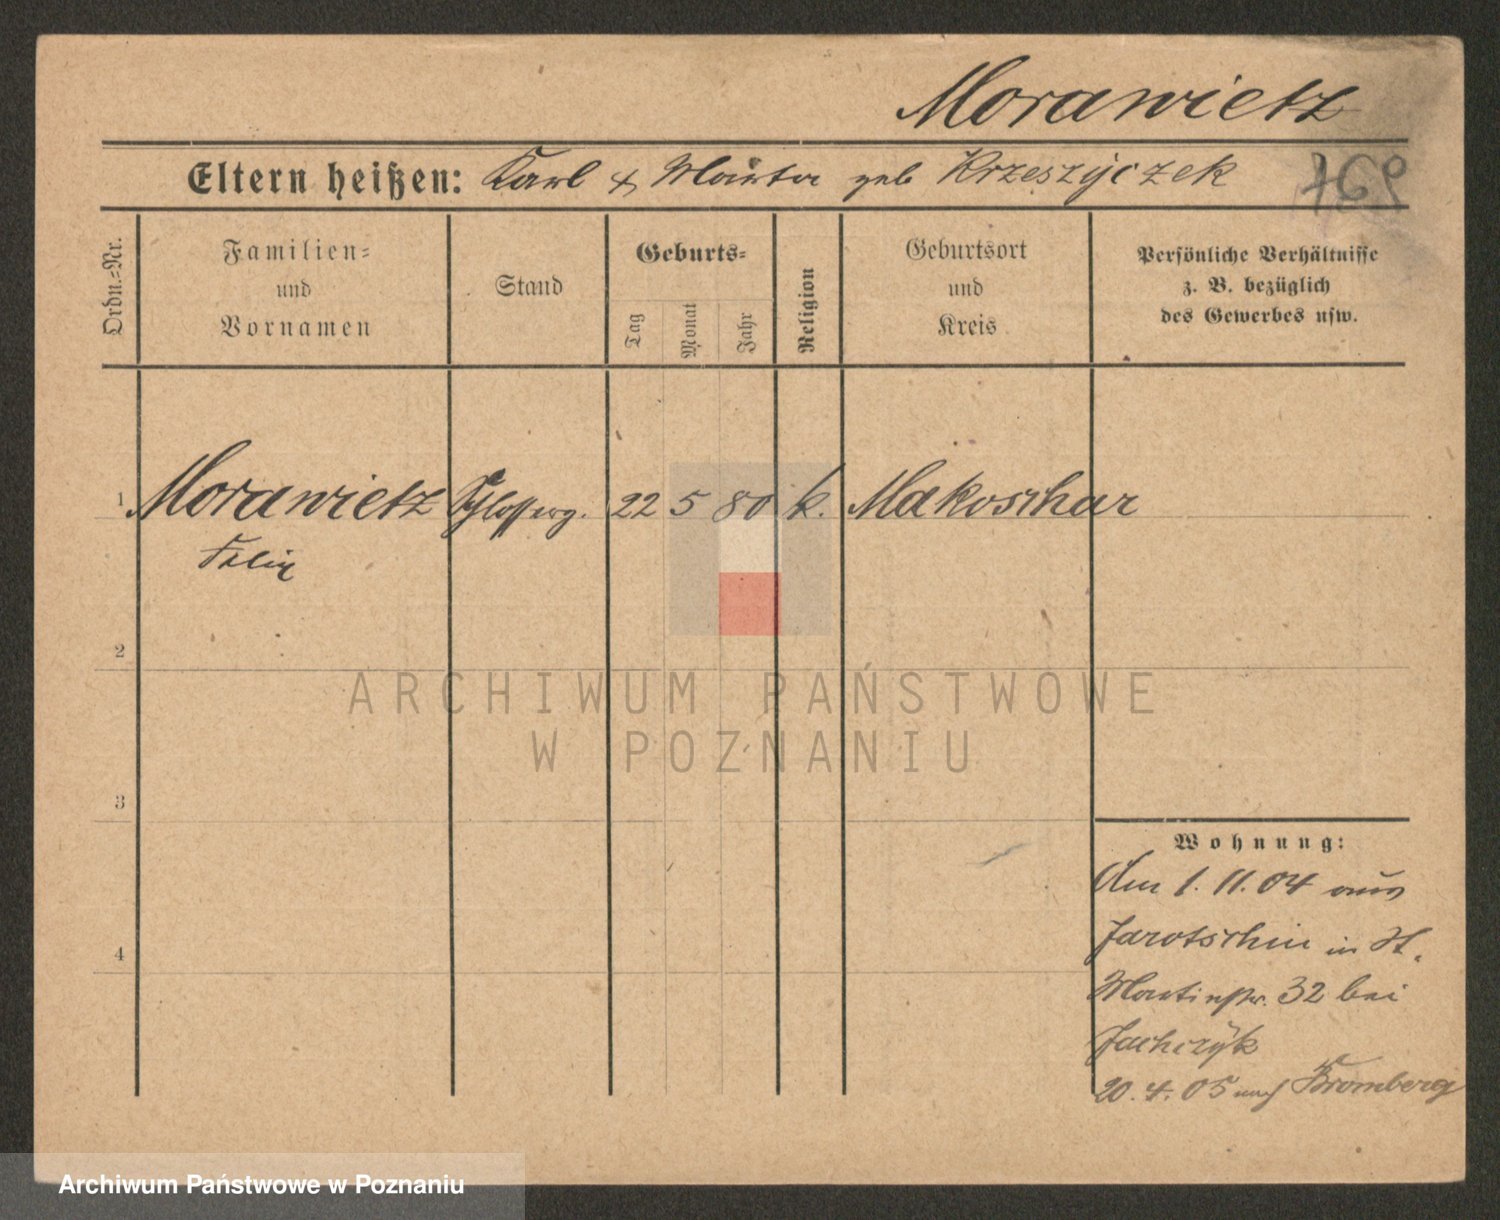 Morawietz
Eltern heißen: Karl & Marta geb Krzeszyczek
769
Ordn.=Nr.
Familien=
und
Vornamen
Stand
Geburts=
Tag
Monat
Jahr
Religion
Geburtsort
und
Kreis
Persönliche Verhältnisse
z. B. bezüglich
des Gewerbes usw.
1 Morawietz Schlosserg. 22 5 80 k. Makoschau
Felix
2
3
4
Wohnung:
Am 1. 11. 04 aus
Jarotschin in St.
Martinstr. 32 bei
20. 4. 05 nach Bromberg
ARCHIWUM PAŃSTWOWE
W POZNANIU
Archiwum Państwowe w Poznaniu